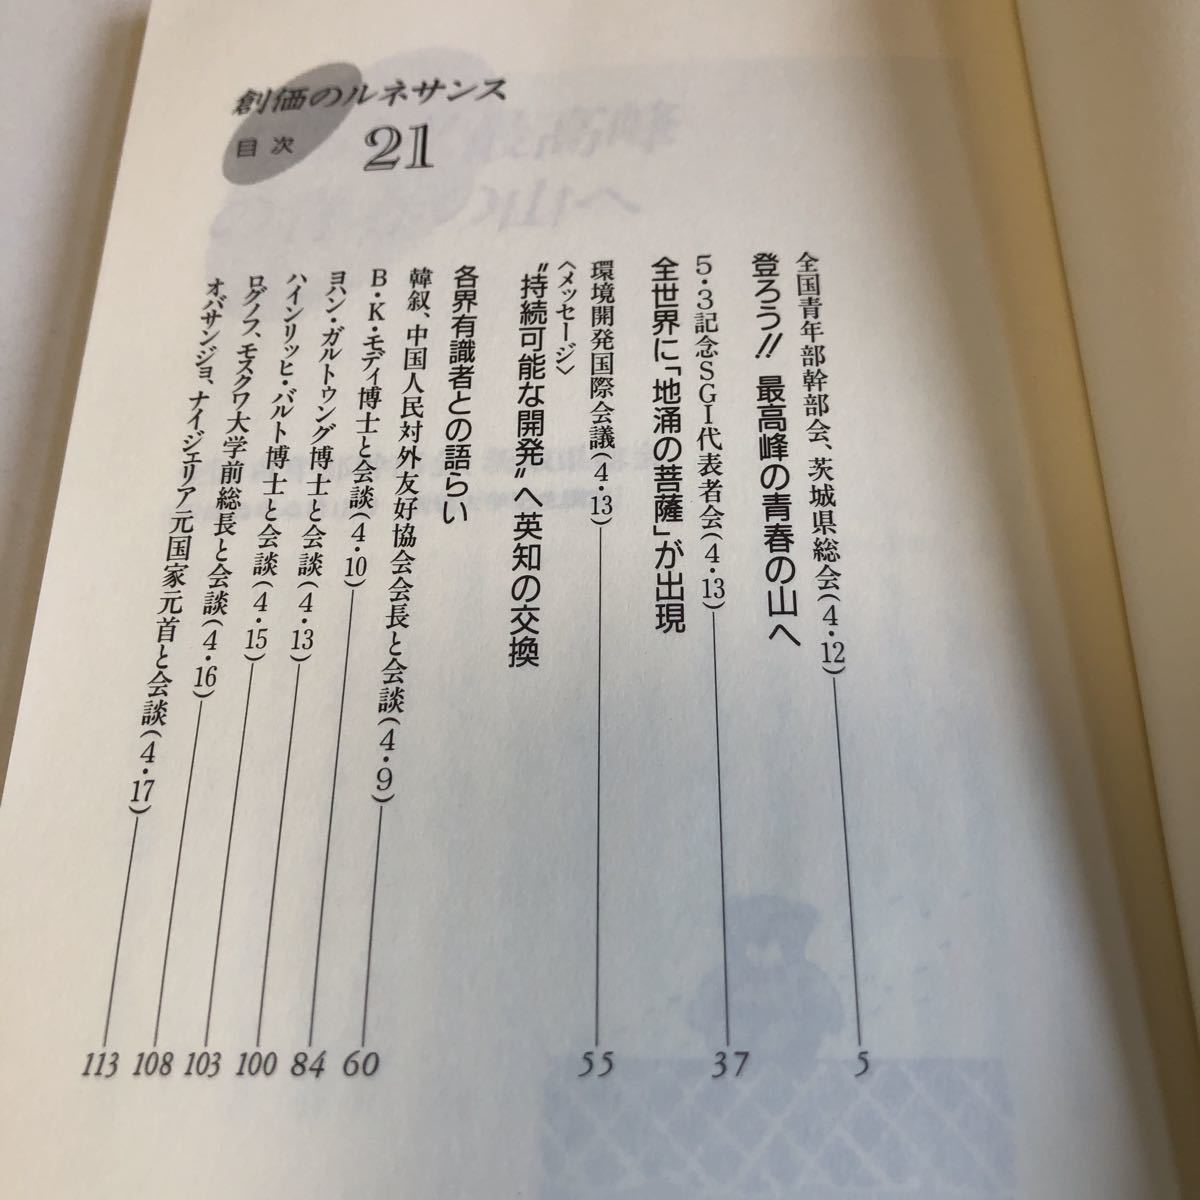 創価のルネサンス
目次
21
全国青年部幹部会、茨城県総会(4・12) 5
登ろう!! 最高峰の青春の山へ
5・3記念SGI代表者会(4・13) 37
全世界に「地涌の菩薩」が出現
環境開発国際会議(4・13) 55
〈メッセージ〉
“持続可能な開発”へ英知の交換
各界有識者との語らい
韓叙、中国人民対外友好協会会長と会談(4・9) 60
B・K・モディ博士と会談(4・10) 84
ヨハン・ガルトゥング博士と会談(4・13) 100
ハインリッヒ・バルト博士と会談(4・15) 103
ログノフ、モスクワ大学前総長と会談(4・16) 108
オバサンジョ、ナイジェリア元国家元首と会談(4・17) 113